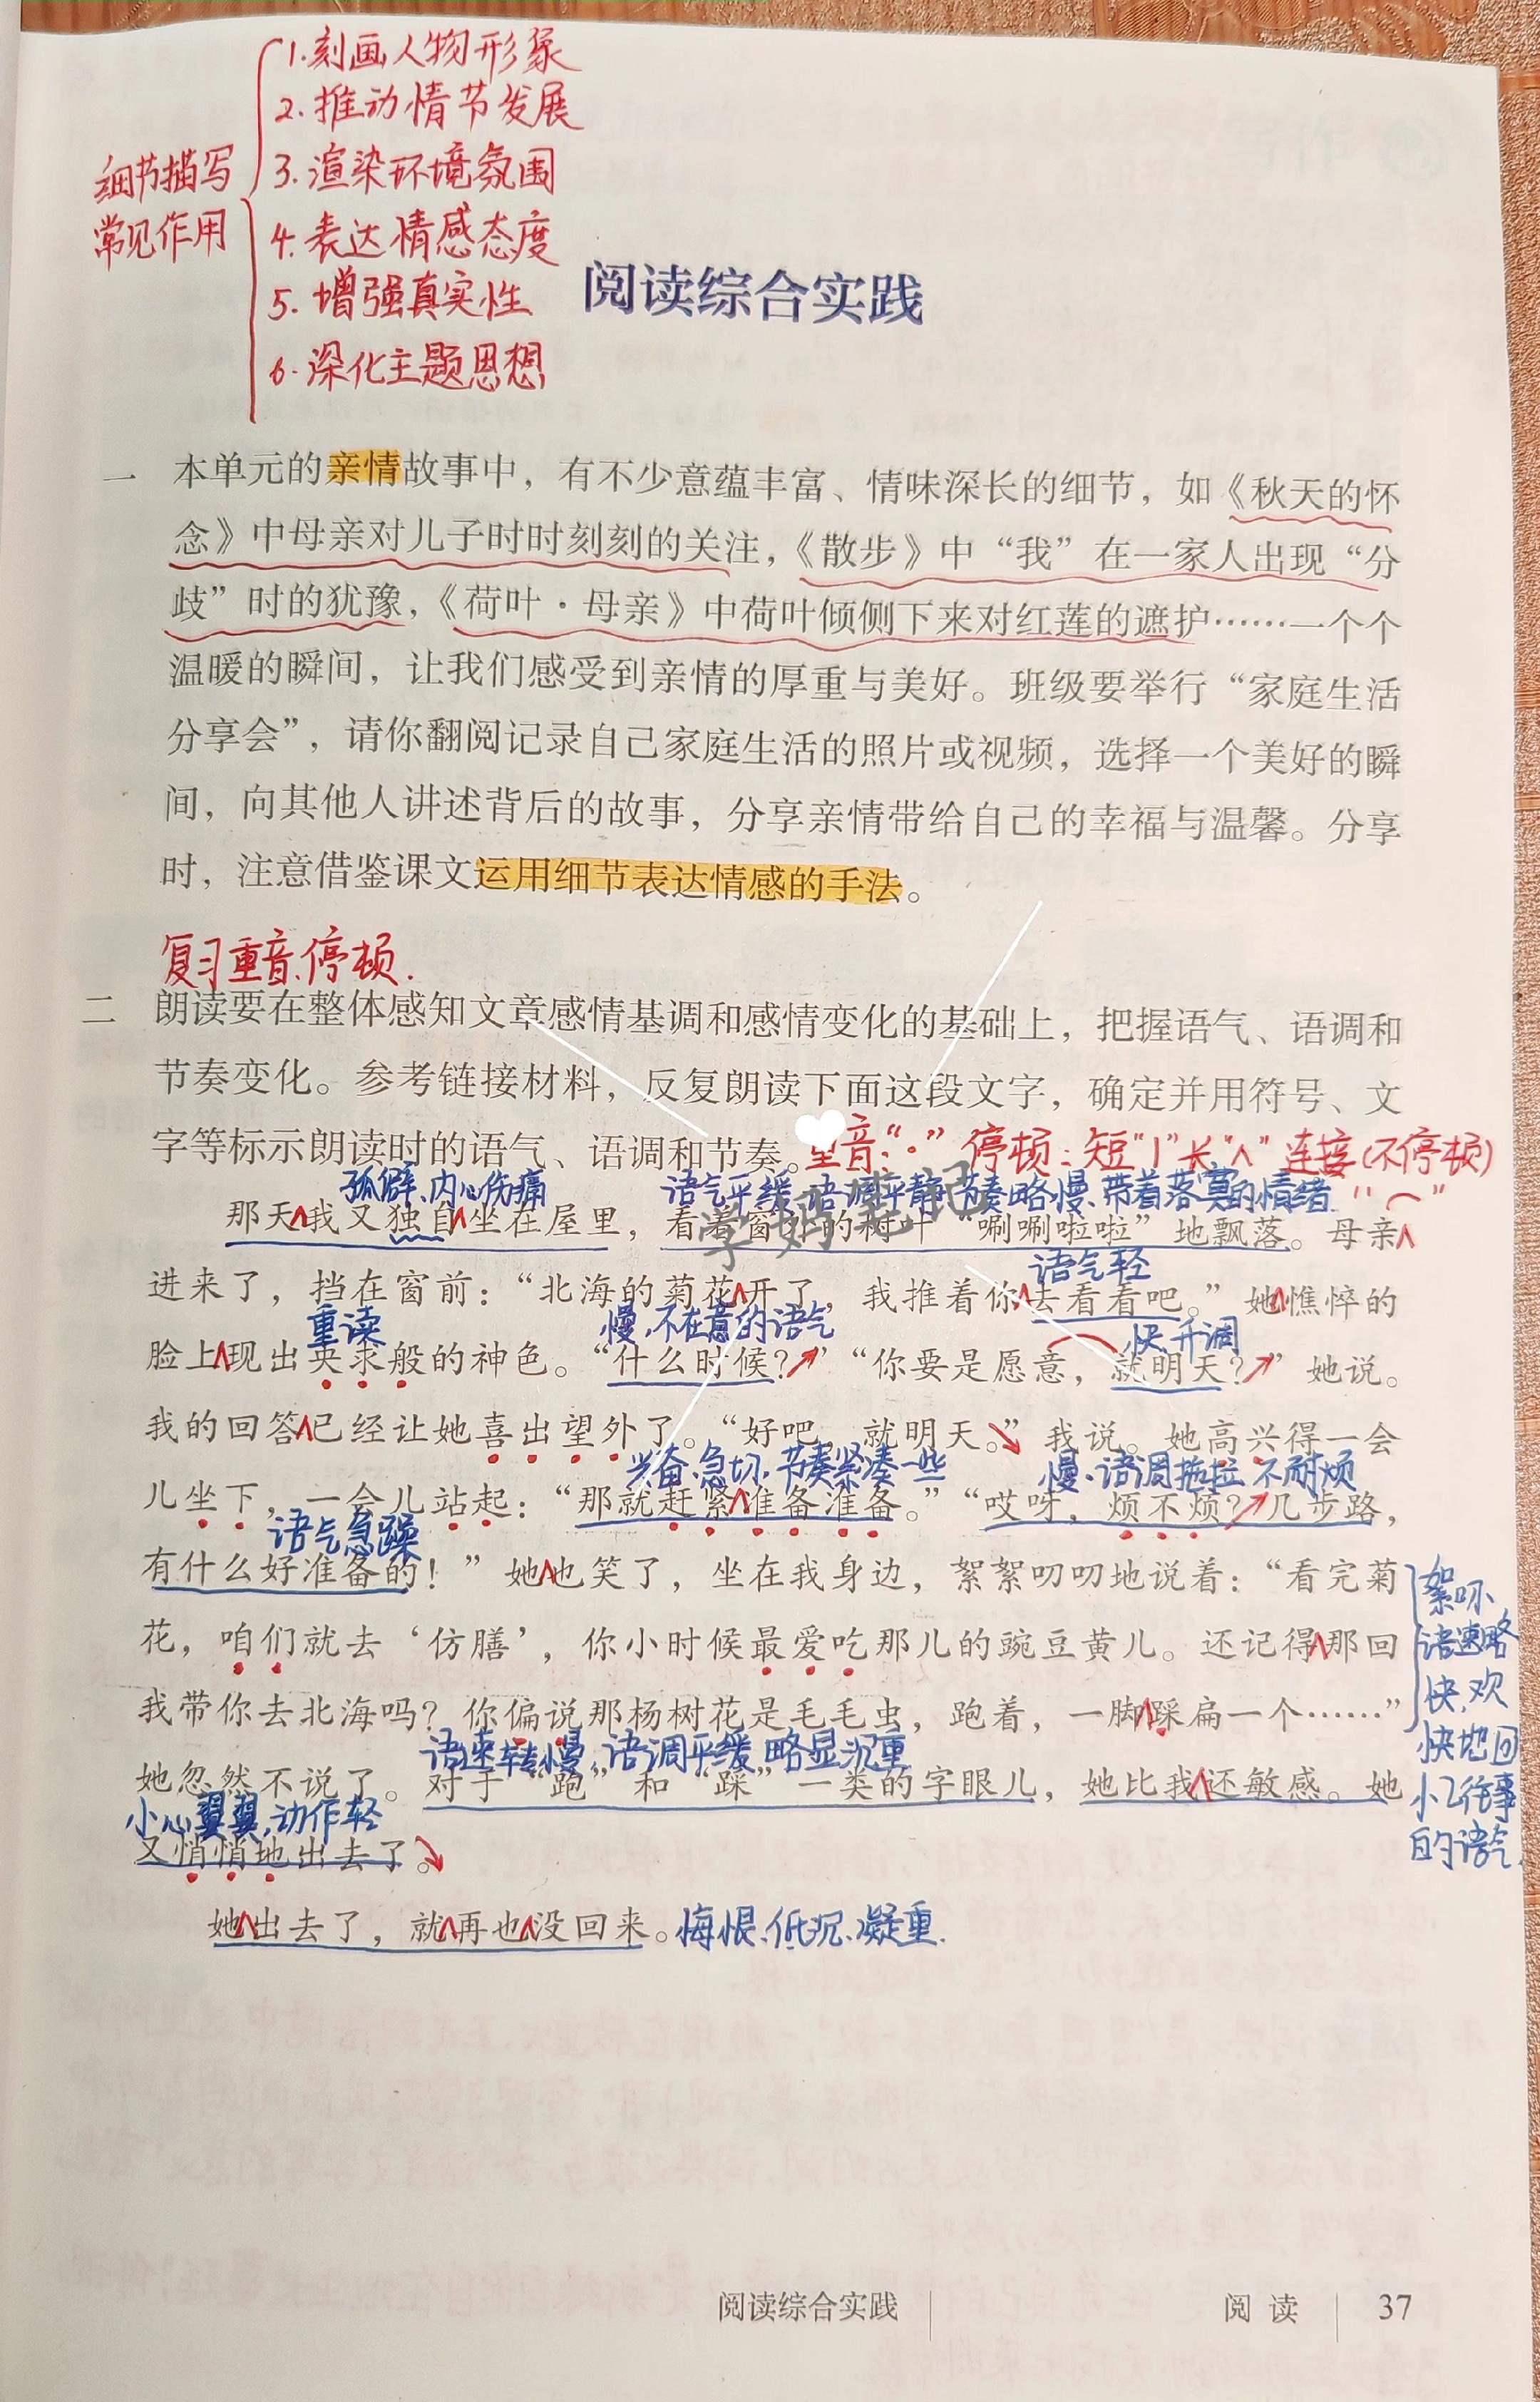 细节描写
常见作用
1.刻画人物形象
2.推动情节发展
3.渲染环境氛围
4.表达情感态度
5.增强真实性
6.深化主题思想
阅读综合实践
一 本单元的亲情故事中，有不少意蕴丰富、情味深长的细节，如《秋天的怀
念》中母亲对儿子时时刻刻的关注，《散步》中“我”在一家人出现“分
歧”时的犹豫，《荷叶·母亲》中荷叶倾侧下来对红莲的遮护……一个个
温暖的瞬间，让我们感受到亲情的厚重与美好。班级要举行“家庭生活
分享会”，请你翻阅记录自己家庭生活的照片或视频，选择一个美好的瞬
间，向其他人讲述背后的故事，分享亲情带给自己的幸福与温馨。分享
时，注意借鉴课文运用细节表达情感的手法。
复习重音、停顿.
二 朗读要在整体感知文章感情基调和感情变化的基础上，把握语气、语调和
节奏变化。参考链接材料，反复朗读下面这段文字，确定并用符号、文
字等标示朗读时的语气、语调和节奏。
重音：“·” 停顿：短“|”长“∧” 连接(不停顿)
“⌒”
孤僻、内心伤痛
语气平缓,语调平静,节奏略慢、带着落寞的情绪.
学妈笔记
那天∧我又独自∧坐在屋里，看着窗外的树叶“唰唰啦啦”地飘落。母亲∧
语气轻
进来了，挡在窗前：“北海的菊花∧开了，我推着你∧去看看吧。”她∧憔悴的
重读
慢,不在意的语气
快,升调
脸上∧现出央求般的神色。“什么时候？↗”“你要是愿意，就明天？↗”她说。
我的回答∧已经让她喜出望外了。“好吧，就明天。↘”我说。她高兴得一会
兴奋、急切、节奏紧凑一些
慢、语调拖拉、不耐烦
儿坐下，一会儿站起：“那就赶紧∧准备准备。”“哎呀，烦不烦？↗几步路，
语气急躁
有什么好准备的！”她∧也笑了，坐在我身边，絮絮叨叨地说着：“看完菊
花，咱们就去‘仿膳’，你小时候最爱吃那儿的豌豆黄儿。还记得∧那回
我带你去北海吗？你偏说那杨树花是毛毛虫，跑着，一脚∧踩扁一个……”
絮叨、
语速略
快,欢
快地回
忆往事
的语气.
语速转慢,语调平缓,略显沉重
她忽然不说了。对于“跑”和“踩”一类的字眼儿，她比我∧还敏感。她
小心翼翼,动作轻
又悄悄地出去了。↘
她∧出去了，就∧再也∧没回来。悔恨、低沉、凝重.
阅读综合实践 | 阅 读 | 37